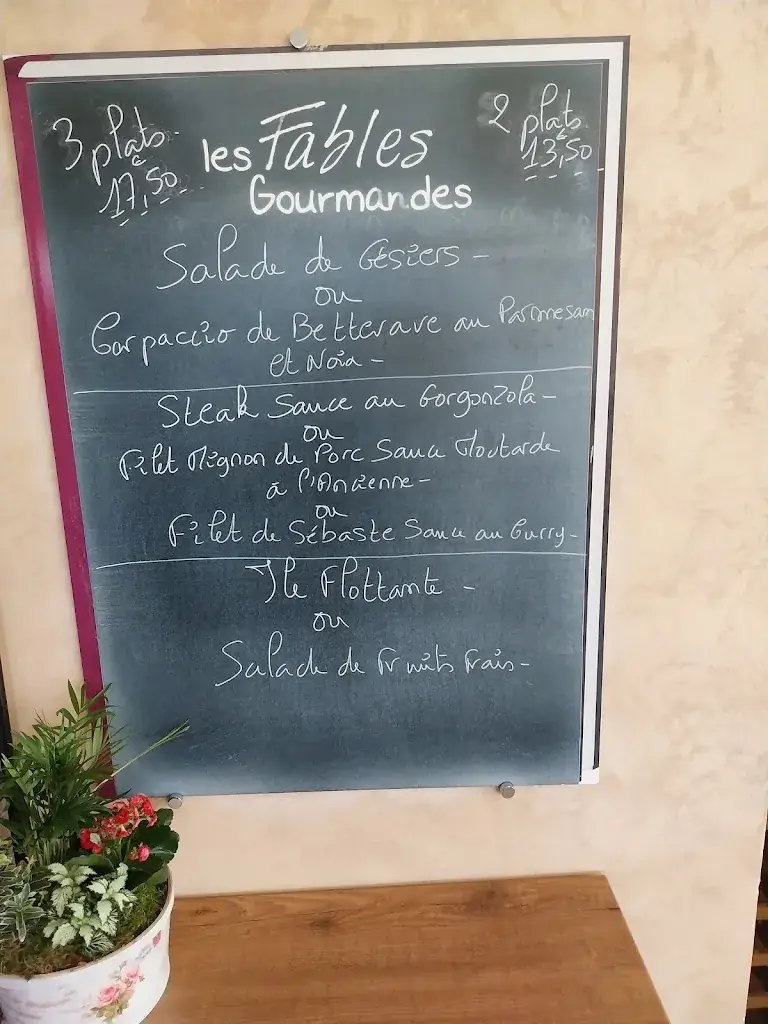 3 plats
à
17,50
les Fables
Gourmandes
2 plats
à
13,50
Salade de Gésiers -
ou
Carpaccio de Betterave au Parmesan
et Noix -
Steak Sauce au Gorgonzola -
ou
Filet Mignon de Porc Sauce Moutarde
à l'Ancienne -
ou
Filet de Sébaste Sauce au Curry -
Ile Flottante -
ou
Salade de Fruits Frais -